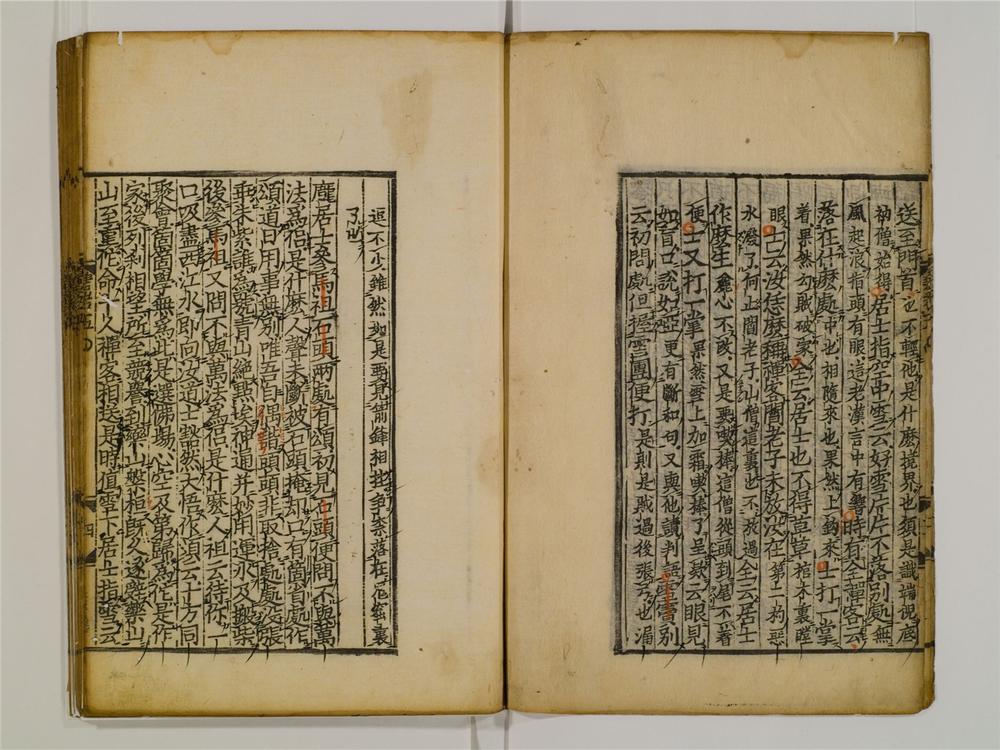 送至門首也不輕他是什麼境界也須是識端倪底
衲僧始得居士指空中雪云好雪片片不落別處無
風起浪指頭有眼這老漢言中有響時有全禪客云
落在什麼處中也相隨來也果然上鈎來士打一掌
着果然勾賊破家全云居士也不得草草棺木裏瞠
眼士云汝恁麼稱禪客閻老子未放汝在第二杓惡
水潑了何止閻老子山僧這裏也不放過全云居士
作麼生麁心不改又是要喫棒這僧從頭到尾不着
便士又打一掌果然雪上加霜喫棒了呈款云眼見
如盲口說如啞更有斷和句又與他讀判語雪竇別
云初問處但握雪團便打是則是賊過後張弓也漏
逗不少雖然如是要見箭鋒相拄爭奈落在鬼窟裏
了也
龐居士參馬祖石頭兩處有頌初見石頭便問不與萬
法為侶是什麼人聲未斷被石頭掩却口有箇省處作
頌道日用事無別唯吾自偶諧頭頭非取捨處處沒張
乖朱紫誰為號青山絕點埃神通并妙用運水及搬柴
後參馬祖又問不與萬法為侶是什麼人祖云待你一
口吸盡西江水即向汝道士豁然大悟作頌云十方同
聚會箇箇學無為此是選佛場心空及第歸為他是作
家後列刹相望所至競譽到藥山盤桓既久遂辭藥山
山至重他命十人禪客相送是時值雪下居士指雪云